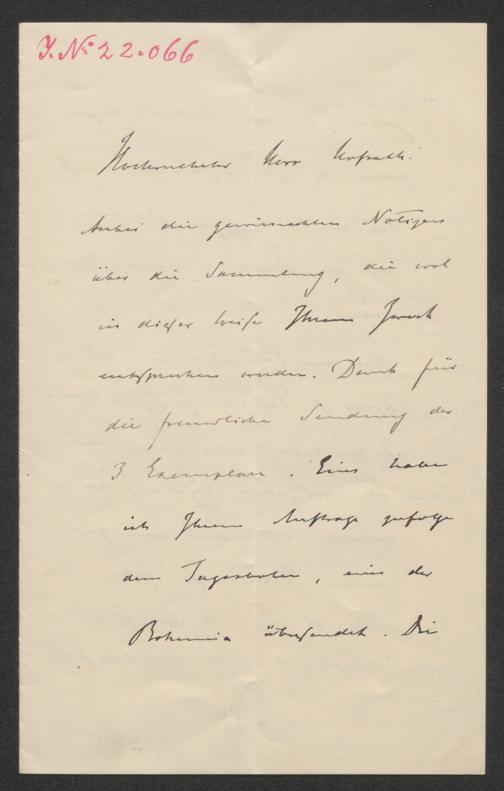 I. No 22.066
Hochverehrter Herr Hofrath.
Anbei die gewünschten Notizen
über die Sammlung, die wol
in dieser Weise Ihrem Zweck
entsprechen werden. Dank für
die freundliche Sendung der
3 Exemplare. Eines habe
ich Ihrem Auftrage zufolge
dem Tagesboten, eins der
Bohemia übersendet. Die